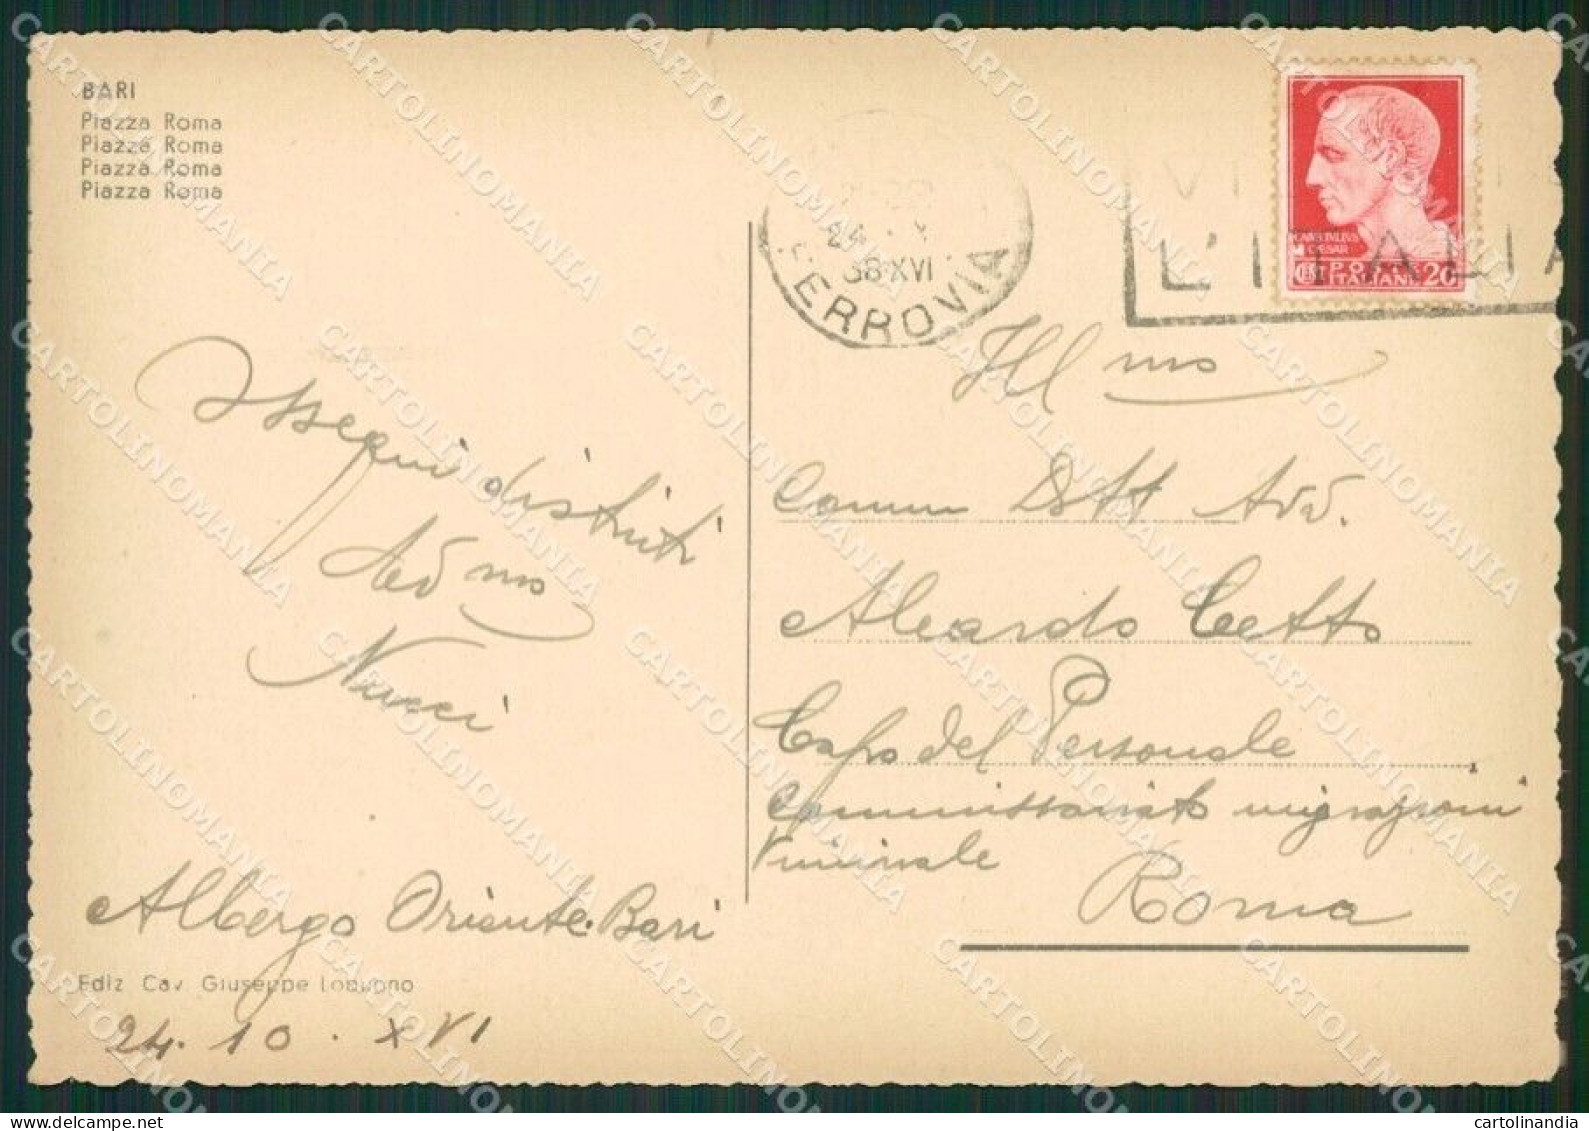 BARI
Piazza Roma
Piazza Roma
Piazza Roma
Piazza Roma
24 X
38 XVI
FERROVIA
L'ITALIA
CAIVS IVLIVS
CAESAR
POSTE
ITALIANE 20
Ill mo
Ossequi distinti
Dev mo
Nucci
Albergo Oriente. Bari
Ediz. Cav. Giuseppe Lobuono
24. 10. XVI
Comm Dott Avv.
Aleardo Cetto
Capo del Personale
Commissariato migrazioni
Viminale
Roma
CARTOLINOMANIA
cartolinandia